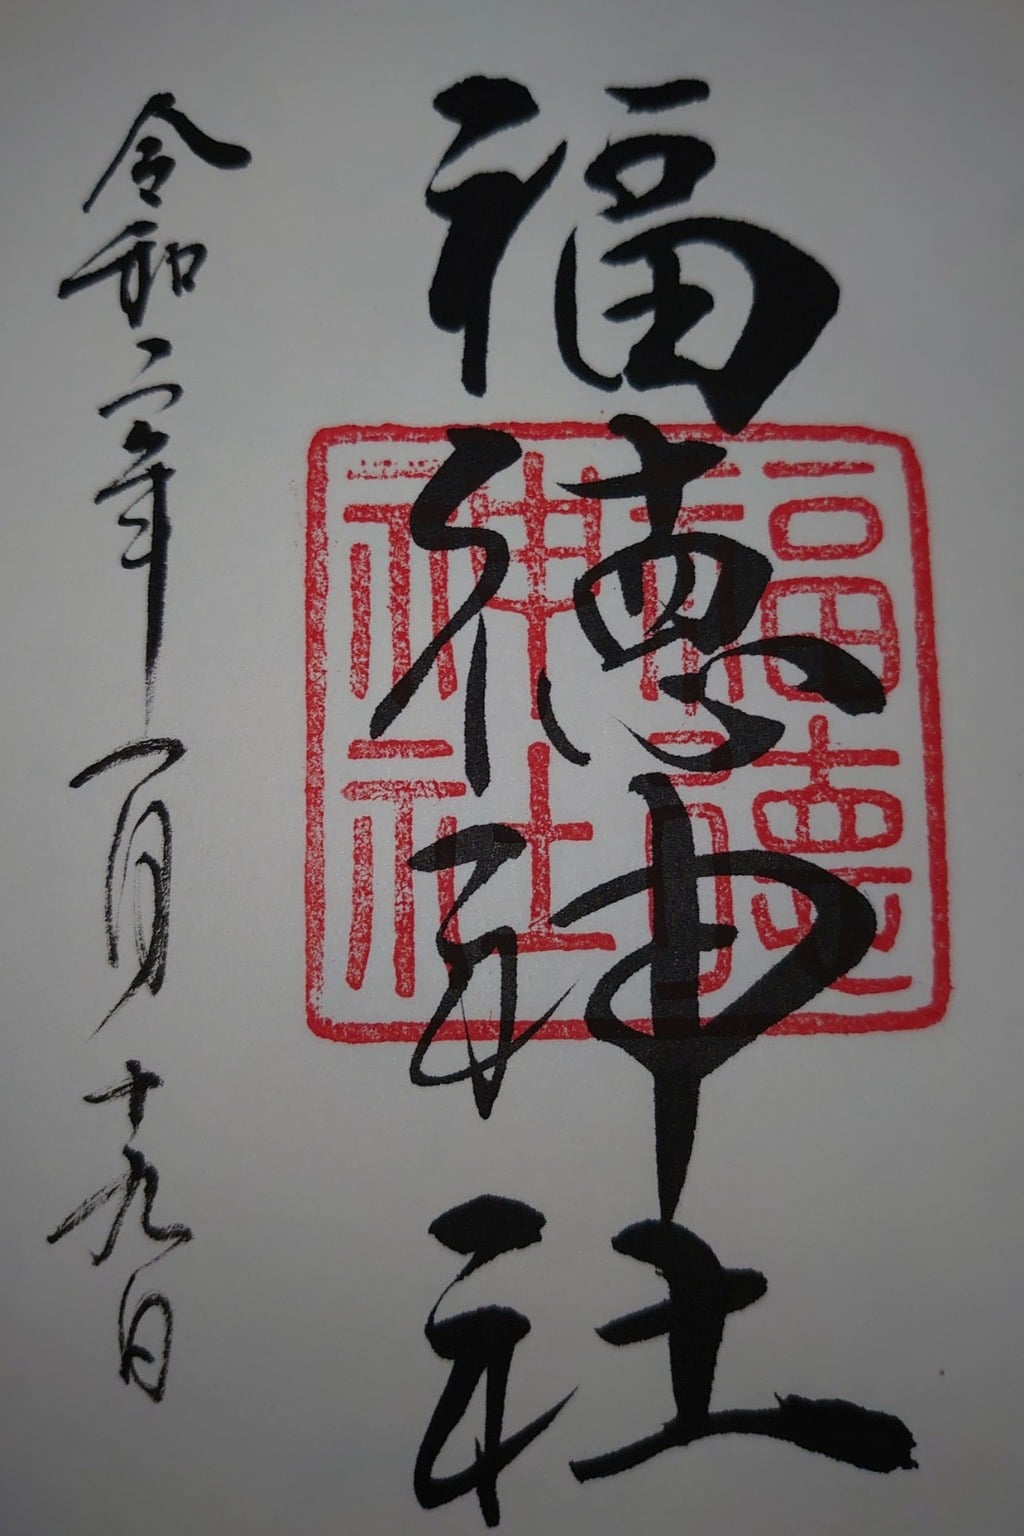 福徳神社
福徳神社
令和二年一月十九日